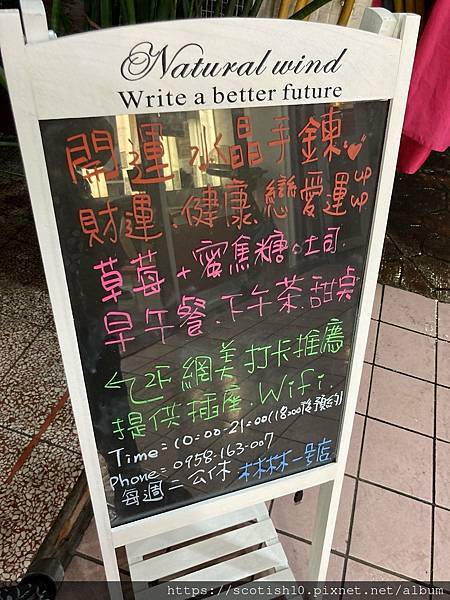 Natural wind
Write a better future
開運水晶手鍊
財運、健康、戀愛運upup
草莓+蜜焦糖。土司.
早午餐.下午茶.甜桌
2F網美打卡推薦
提供插座.Wifi.
Time=10=00-21=00(18=00後預約)
phone=0958-163-007
每週二公休 林林林一号店
https://scotish10.pixnet.net/album